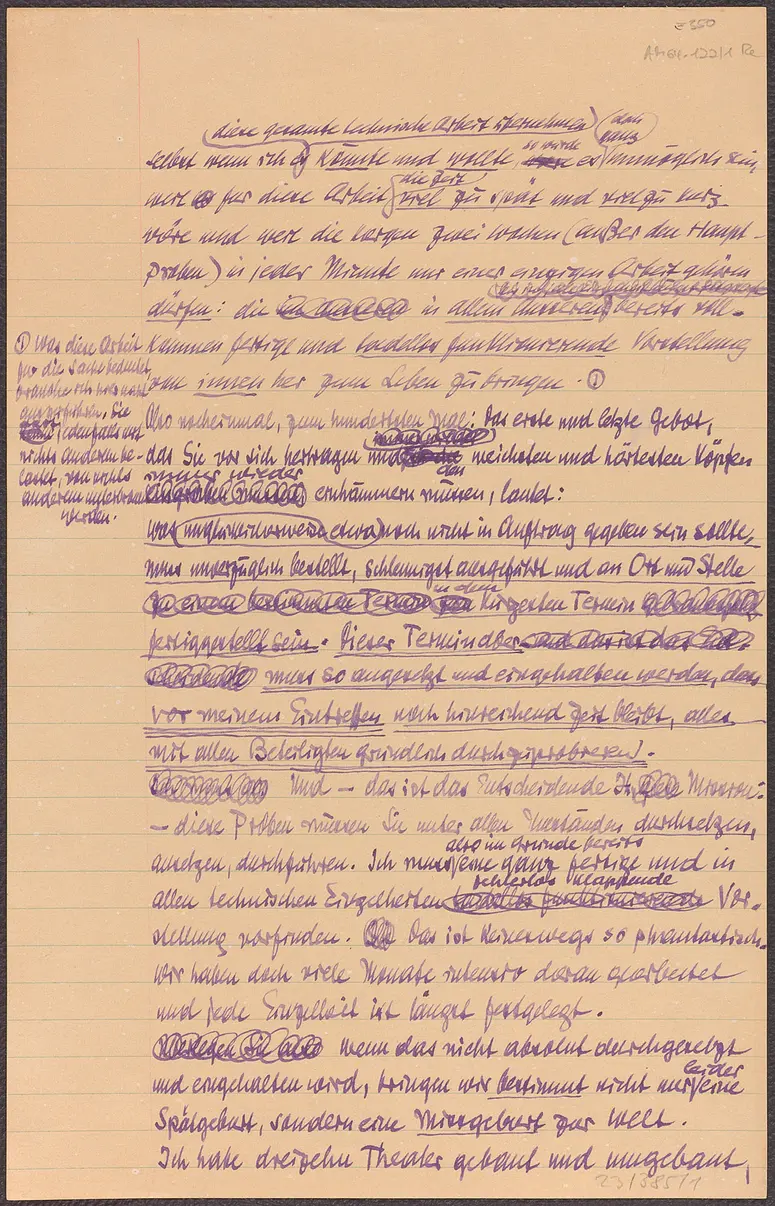 =350
AM 61.122/1 Re
(diese gesamte technische Arbeit übernehmen) (dann ganz
selbst wenn ich es könnte und wollte, so würde es unmöglich sein,
weil für diese Arbeit die Zeit viel zu spät und viel zu kurz
wäre und weil die kargen zwei Wochen (außer den Haupt-
proben) in jeder Minute nur einer einzigen Arbeit gehören
dürfen: die in allem Äusseren bereits voll-
kommen fertige und tadellos funktionierende Vorstellung
von innen her zum Leben zu bringen. ①
① Was diese Arbeit
für die Sache bedeutet,
brauche ich wohl nicht
auszuführen. Sie
jedenfalls mit
nichts anderem be-
lastet, von nichts
anderem unterbrochen
werden.
Also nocheinmal, zum hundertsten Mal: Das erste und letzte Gebot,
das Sie vor sich hertragen und den weichsten und härtesten Köpfen
immer wieder einhämmern müssen, lautet:
was (unglücklicherweise etwa) noch nicht in Auftrag gegeben sein sollte,
muss unverzüglich bestellt, schleunigst ausgeführt und an Ort und Stelle
in dem kürzesten Termin
fertiggestellt sein. Dieser Termin aber
muss so angesetzt und eingehalten werden, dass
vor meinem Eintreffen noch hinreichend Zeit bleibt, alles
mit allen Beteiligten gründlich durchzuprobieren.
Und – das ist das Entscheidende Ihrer Mission:
– diese Proben müssen Sie unter allen Umständen durchsetzen,
ansetzen, durchführen. Ich muss also im Grunde bereits eine ganz fertige und in
allen technischen Einzelheiten fehlerlos klappende Vor-
stellung vorfinden. Das ist keineswegs so phantastisch.
Wir haben doch viele Monate intensiv daran gearbeitet
und jede Einzelheit ist längst festgelegt.
Wenn das nicht absolut durchgesetzt
und eingehalten wird, bringen wir bestimmt nicht nur leider eine
Spätgeburt, sondern eine Missgeburt zur Welt.
Ich habe dreizehn Theater gebaut und umgebaut,
23/385/1